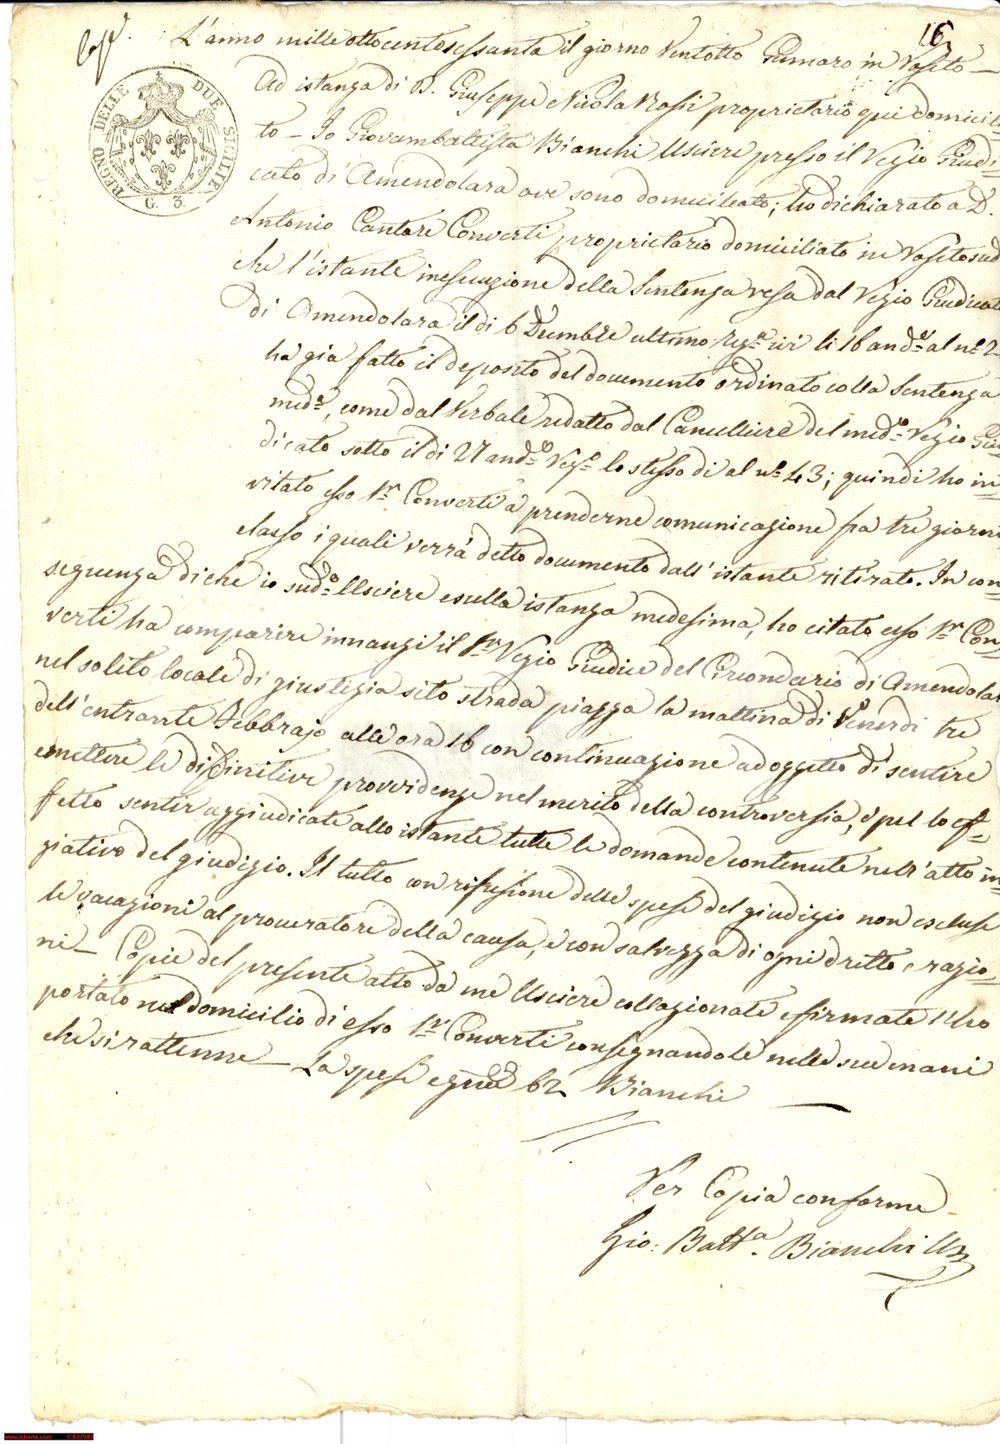 16
L'anno mille ottocentosessanta il giorno Ventotto Gennaro in Roseto
REGNO DELLE DUE SICILIE
G. 3.
Ad istanza di D. Giuseppe Nicola Rossi proprietario qui domicilia
to – Io Giovambattista Bianchi Usciere presso il Regio Giudi
cato di Amendolara ove sono domiciliato; ho dichiarato a D.
Antonio Cantore Converti proprietario domiciliato in Roseto sud
che l'istante in esecuzione della Sentenza resa dal Regio Giudicato
di Amendolara il di 6 Dicembre ultimo li 16 andte al nº 2
ha già fatto il deposito del documento ordinato colla Sentenza
meda, come dal Verbale redatto dal Cancelliere del medo Regio Giu
dicato sotto il di 27 ando Rego lo stesso di al nº 43; quindi ho in
vitato esso Sr Converti a prenderne comunicazione fra tre giorni
elasso i quali verrà detto documento dall'istante ritirato. In con
seguenza di che io sudo Usciere e sulla istanza medesima, ho citato esso Sr Con
verti ha comparire innanzi il Sr Regio Giudice del Circondario di Amendolar
nel solito locale di giustizia sito strada piazza la mattina di Venerdi tre
dell'entrante Febbrajo alle ora 16 con continuazione ad oggetto di sentire
emettere le diffinitive provvidenze nel merito della controversia, e pel lo ef
fetto sentir aggiudicate allo istante tutte le domande contenute nell'atto in
ziativo del giudizio. Il tutto con rifusione delle spese del giudizio non escluse
le vacazioni al procuratore della causa, e con salvezza di ogni dritto e ragio
ni – Copie del presente atto da me Usciere collazionate e firmate l'ho
portato nel domicilio di esso Sr Converti consegnandole nelle sue mani
che si rattenne – La spesa è gna 62 Bianchi
Per Copia conforme
Gio: Batta Bianchi Us
www.lisbarte.com